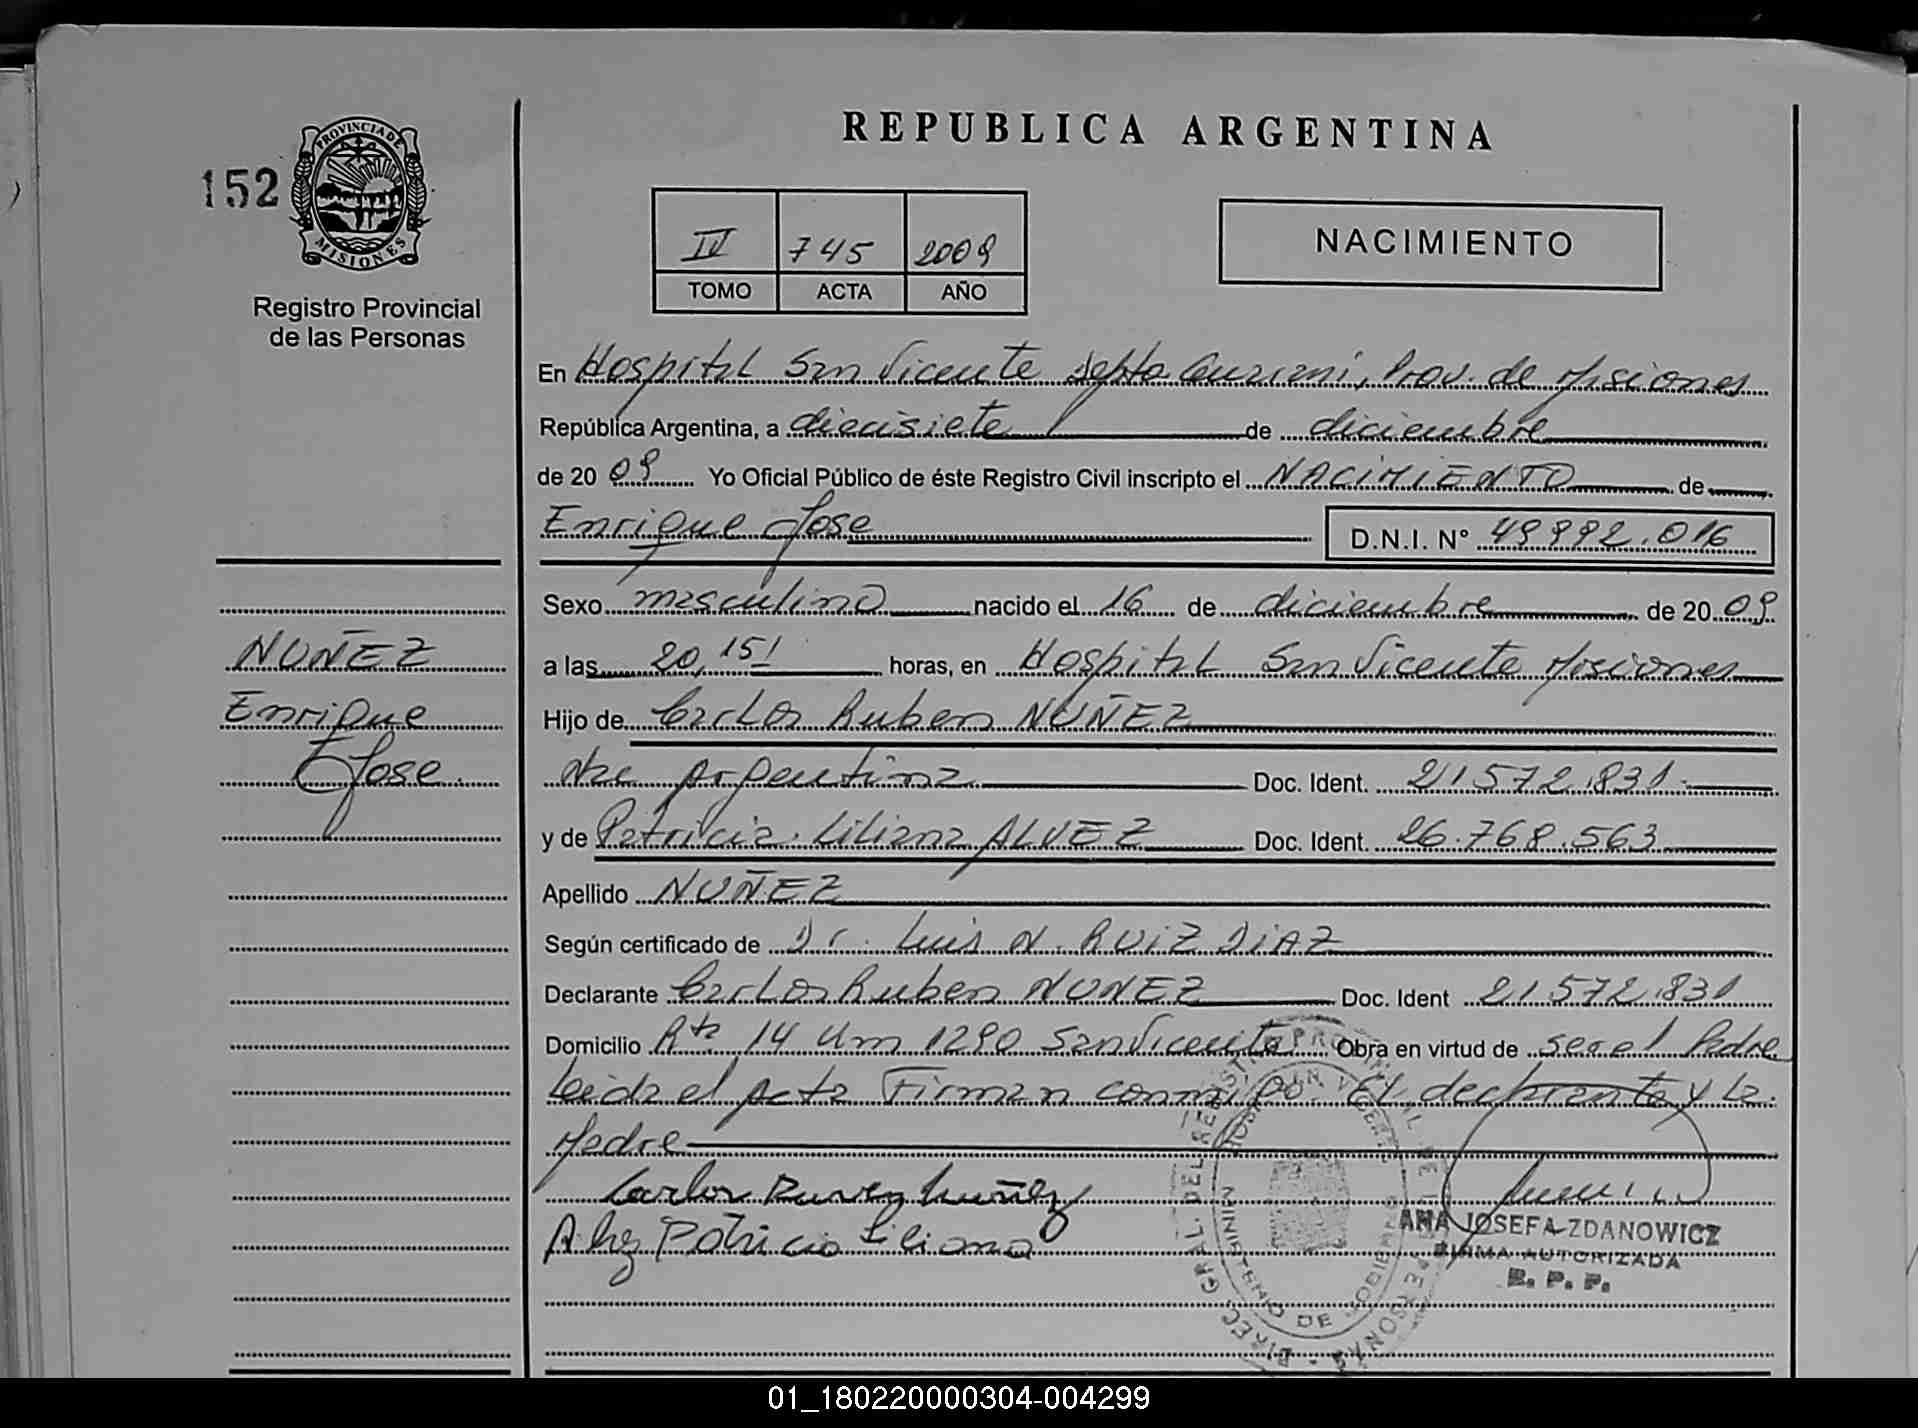 REPUBLICA ARGENTINA
152
PROVINCIA DE
MISIONES
Registro Provincial
de las Personas
IV 745 2009
TOMO ACTA AÑO
NACIMIENTO
En Hospital San Vicente Depto Guarani, Prov. de Misiones
República Argentina, a diecisiete de diciembre
de 20 09 Yo Oficial Público de éste Registro Civil inscripto el NACIMIENTO de
Enrique Jose D.N.I. N° 49992.016
Sexo masculino nacido el 16 de diciembre de 20 09
a las 20,15 horas, en Hospital San Vicente Misiones
NUÑEZ
Enrique
Jose
Hijo de Carlos Ruben NUÑEZ
Nac Argentina Doc. Ident. 21572.831
y de Patricia Liliana ALVEZ Doc. Ident. 26.768.563
Apellido NUÑEZ
Según certificado de Dr. Luis N. RUIZ DIAZ
Declarante Carlos Ruben NUÑEZ Doc. Ident 21572.831
Domicilio Rta 14 Km 1290 San Vicente Obra en virtud de ser el Padre
Leida el Acta Firman conmigo. El declarante y La
Madre
Carlos Ruben Nuñez
Alvez Patricia Liliana
ANA JOSEFA ZDANOWICZ
FIRMA AUTORIZADA
R. P. P.
MINISTERIO DE GOBIERNO
01_180220000304-004299